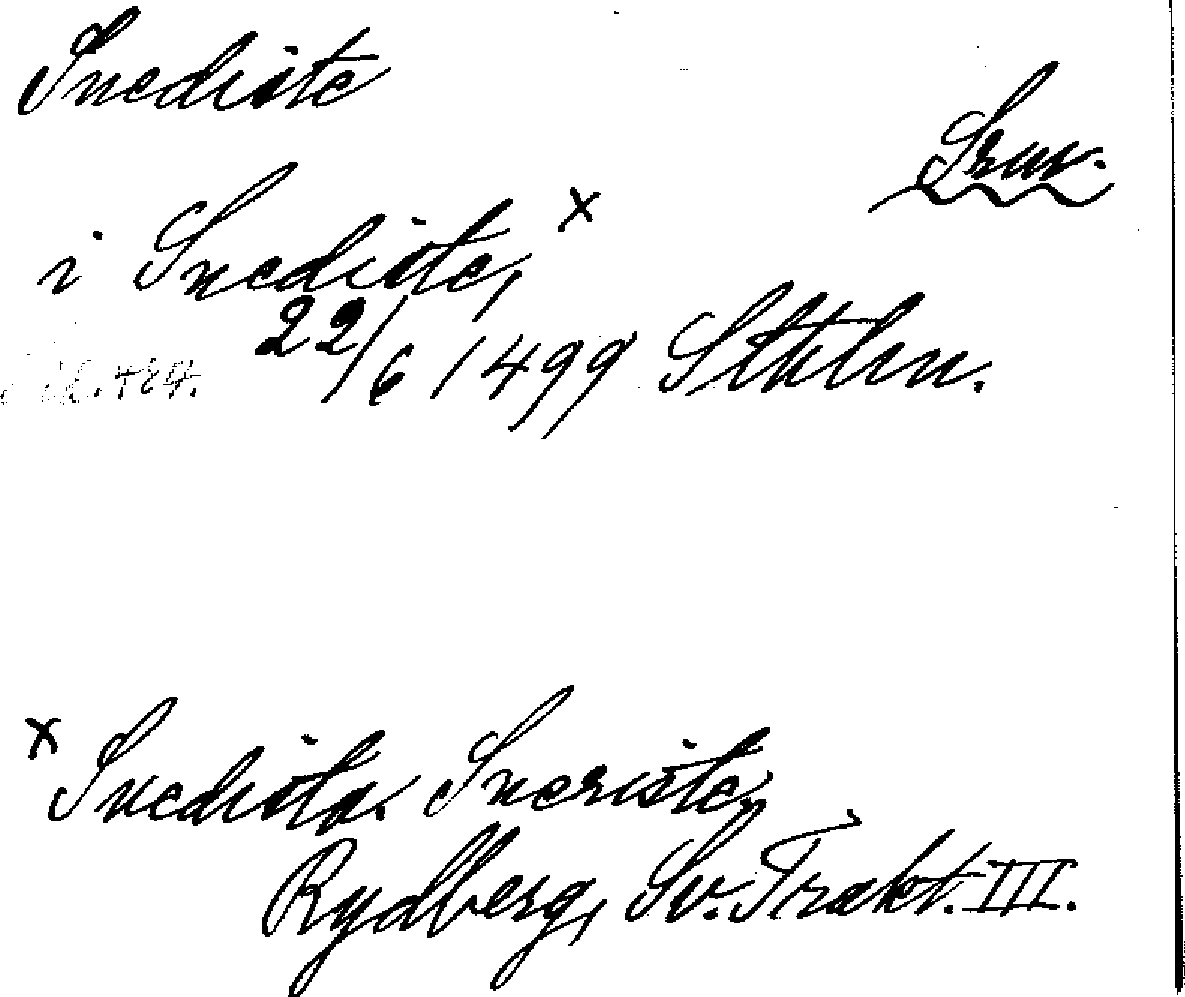 Snediste
Srav.
i Snediste, x
22/6 1499 Sthlm.
x Snedista. Sneriste,
Rydberg, Sv. Trakt. III.